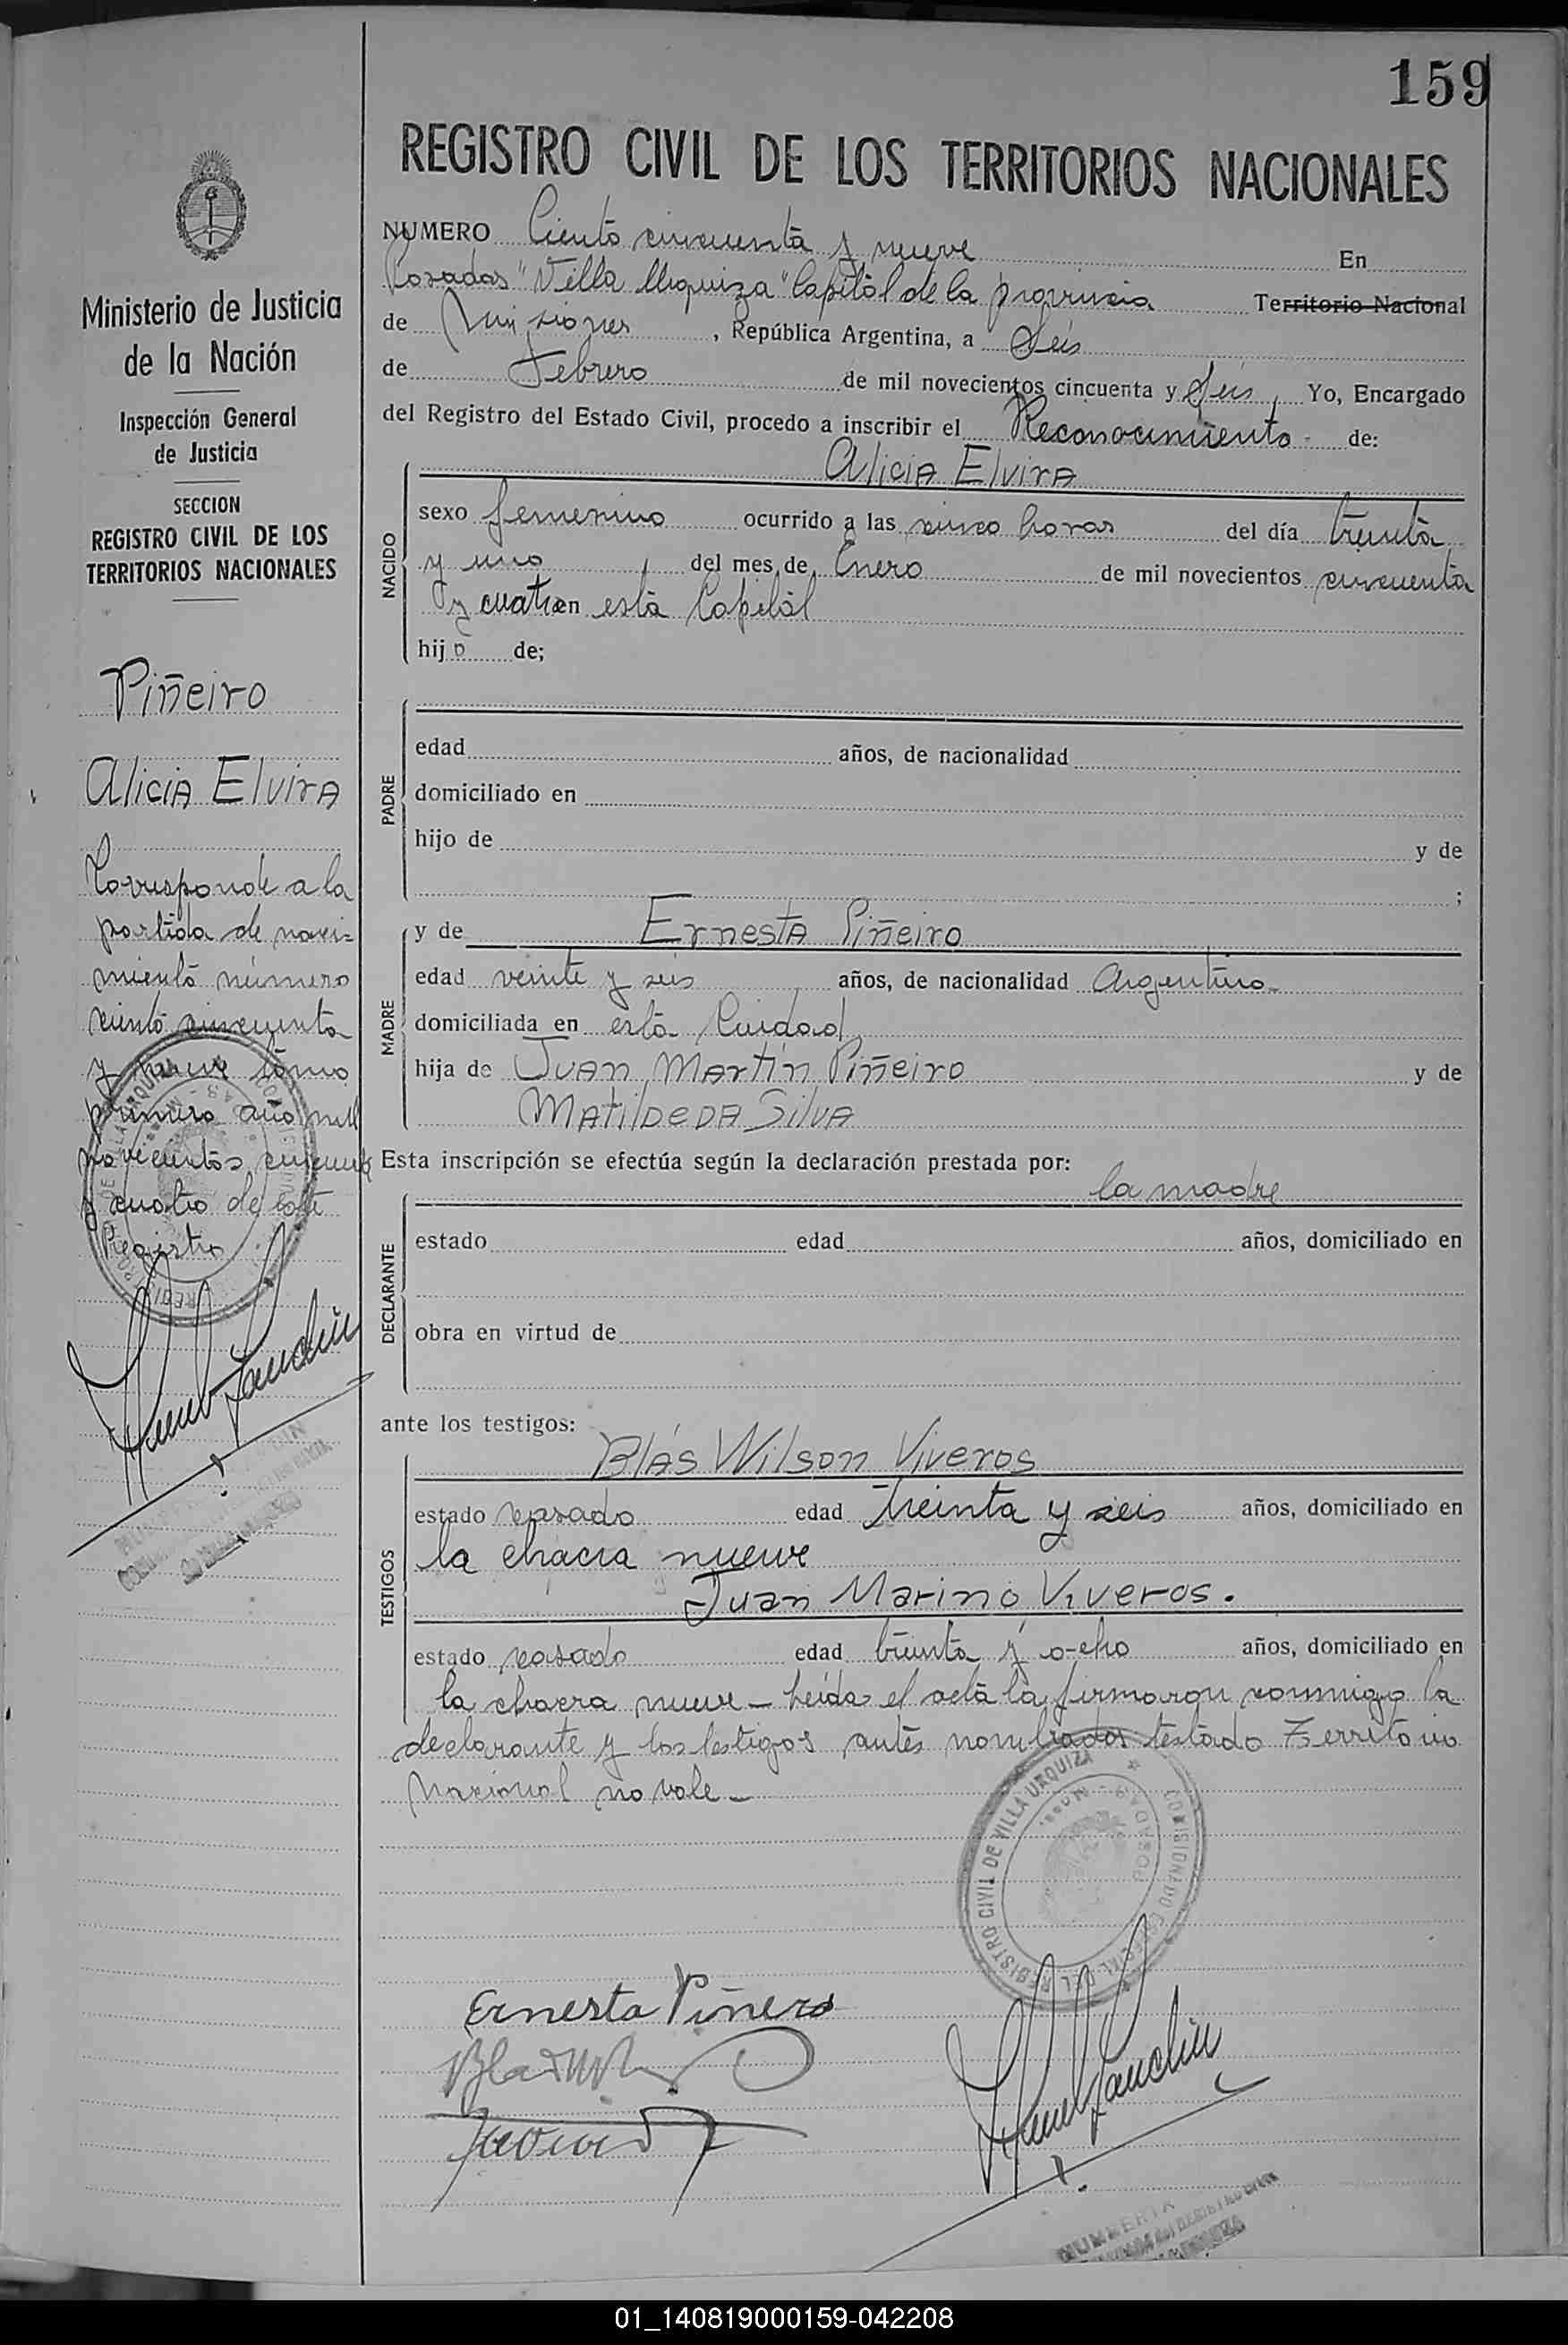 159
REGISTRO CIVIL DE LOS TERRITORIOS NACIONALES
NUMERO Ciento cincuenta y nueve En
Posadas "Villa Urquiza" Capital de la provincia Territorio Nacional
de Misiones, República Argentina, a Seis
de Febrero de mil novecientos cincuenta y Seis, Yo, Encargado
del Registro del Estado Civil, procedo a inscribir el Reconocimiento de:
Alicia Elvira
NACIDO
sexo femenino ocurrido a las cinco horas del día treinta
y uno del mes de Enero de mil novecientos cincuenta
y cuatro en esta Capital
hij a de;
PADRE
edad años, de nacionalidad
domiciliado en
hijo de y de
;
MADRE
y de Ernesta Piñeiro
edad veinte y seis años, de nacionalidad Argentina
domiciliada en esta Ciudad
hija de Juan Martín Piñeiro y de
Matilde Da Silva
Esta inscripción se efectúa según la declaración prestada por:
la madre
DECLARANTE
estado edad años, domiciliado en
obra en virtud de
ante los testigos:
TESTIGOS
Blás Wilson Viveros
estado casado edad treinta y seis años, domiciliado en
la chacra nueve
Juan Marino Viveros.
estado casado edad treinta y ocho años, domiciliado en
la chacra nueve – Leída el acta la firmaron conmigo la
declarante y los testigos antes nombrados testado Territorio
Nacional no vale –
REGISTRO CIVIL DE VILLA URQUIZA
POSADAS
Ernesta Piñero
Ministerio de Justicia
de la Nación
Inspección General
de Justicia
SECCION
REGISTRO CIVIL DE LOS
TERRITORIOS NACIONALES
Piñeiro
Alicia Elvira
Corresponde a la
partida de naci=
miento número
ciento cincuenta
y nueve tomo
primero año mil
novecientos cincuenta
y cuatro de este
Registro
01_140819000159-042208